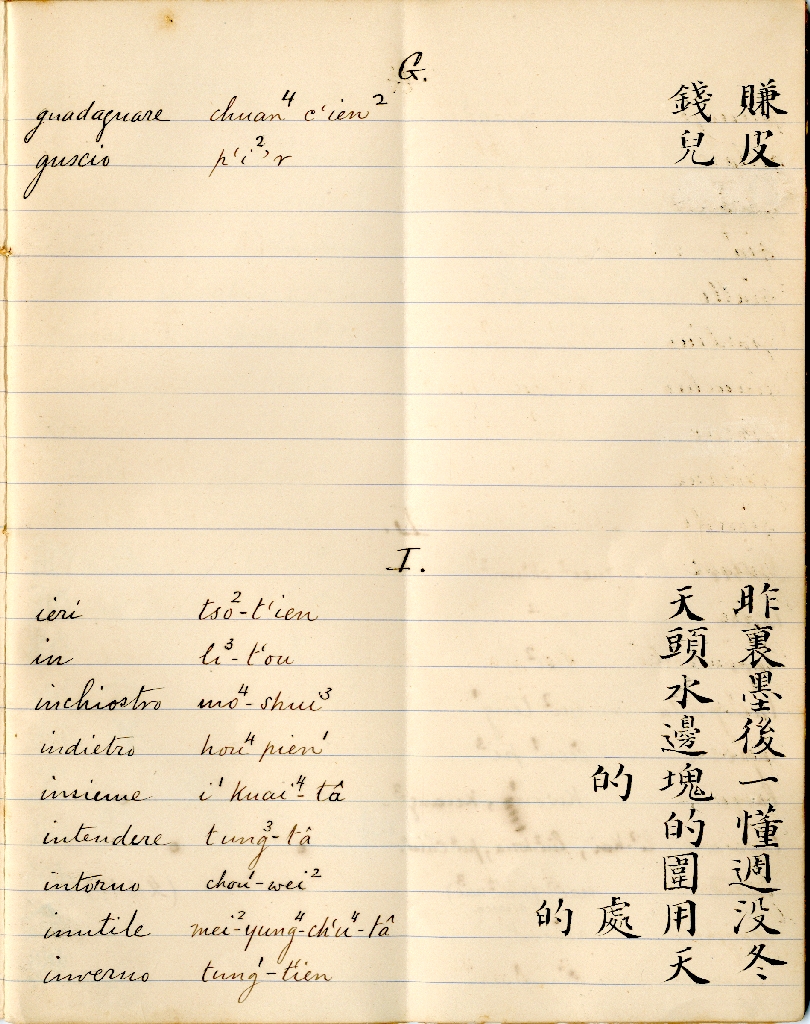 G.
guadagnare chuan⁴ c'ien² 賺錢
guscio p'i²'r 皮兒
I.
ieri tsó²-t'ien 昨天
in li³-t'ou 裏頭
inchiostro mó⁴-shui³ 墨水
indietro hou⁴ pien¹ 後邊
insieme i¹ kuai⁴-tâ 一塊的
intendere tung³-tâ 懂的
intorno chou¹-wei² 週圍
inutile mei²-yung⁴-ch'u⁴-tâ 没用處的
inverno tung¹-t'ien 冬天